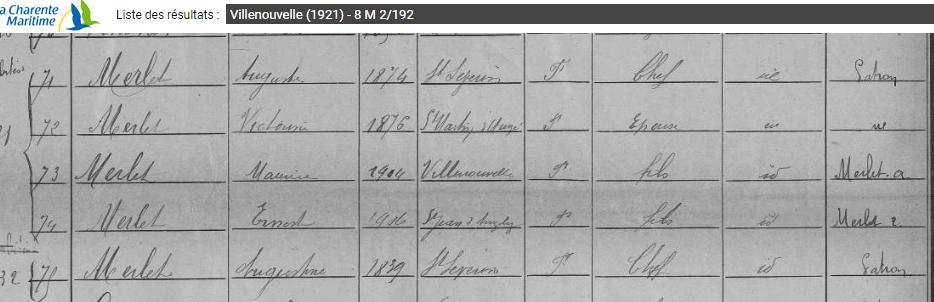 la Charente
Maritime
Liste des résultats : Villenouvelle (1921) - 8 M 2/192
71 Merlet Auguste 1874 St Séverin F Chef id Patron
72 Merlet Victorine 1876 St Martin d'Augé F Epouse id
73 Merlet Maurice 1904 Villenouvelle F fils id Merlet a.
74 Merlet Ernest 1906 St Jean d'Angély F fils id Merlet
32 75 Merlet Augustine 1839 St Séverin F Chef id Patron